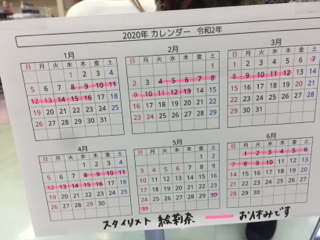 2020年 カレンダー 令和2年
1月
日 月 火 水 木 金 土
1 2 3 4
5 6 7 8 9 10 11
12 13 14 15 16 17 18
19 20 21 22 23 24 25
26 27 28 29 30 31
2月
日 月 火 水 木 金 土
1
2 3 4 5 6 7 8
9 10 11 12 13 14 15
16 17 18 19 20 21 22
23 24 25 26 27 28 29
3月
日 月 火 水 木 金 土
1 2 3 4 5 6 7
8 9 10 11 12 13 14
15 16 17 18 19 20 21
22 23 24 25 26 27 28
29 30 31
4月
日 月 火 水 木 金 土
1 2 3 4
5 6 7 8 9 10 11
12 13 14 15 16 17 18
19 20 21 22 23 24 25
26 27 28 29 30
5月
日 月 火 水 木 金 土
1 2
3 4 5 6 7 8 9
10 11 12 13 14 15 16
17 18 19 20 21 22 23
24 25 26 27 28 29 30
31
6月
日 月 火 水 木 金 土
1 2 3 4 5 6
7 8 9 10 11 12 13
14 15 16 17 18 19 20
21 22 23 24 25 26 27
28 29 30
スタイリスト 絵莉奈 お休みです